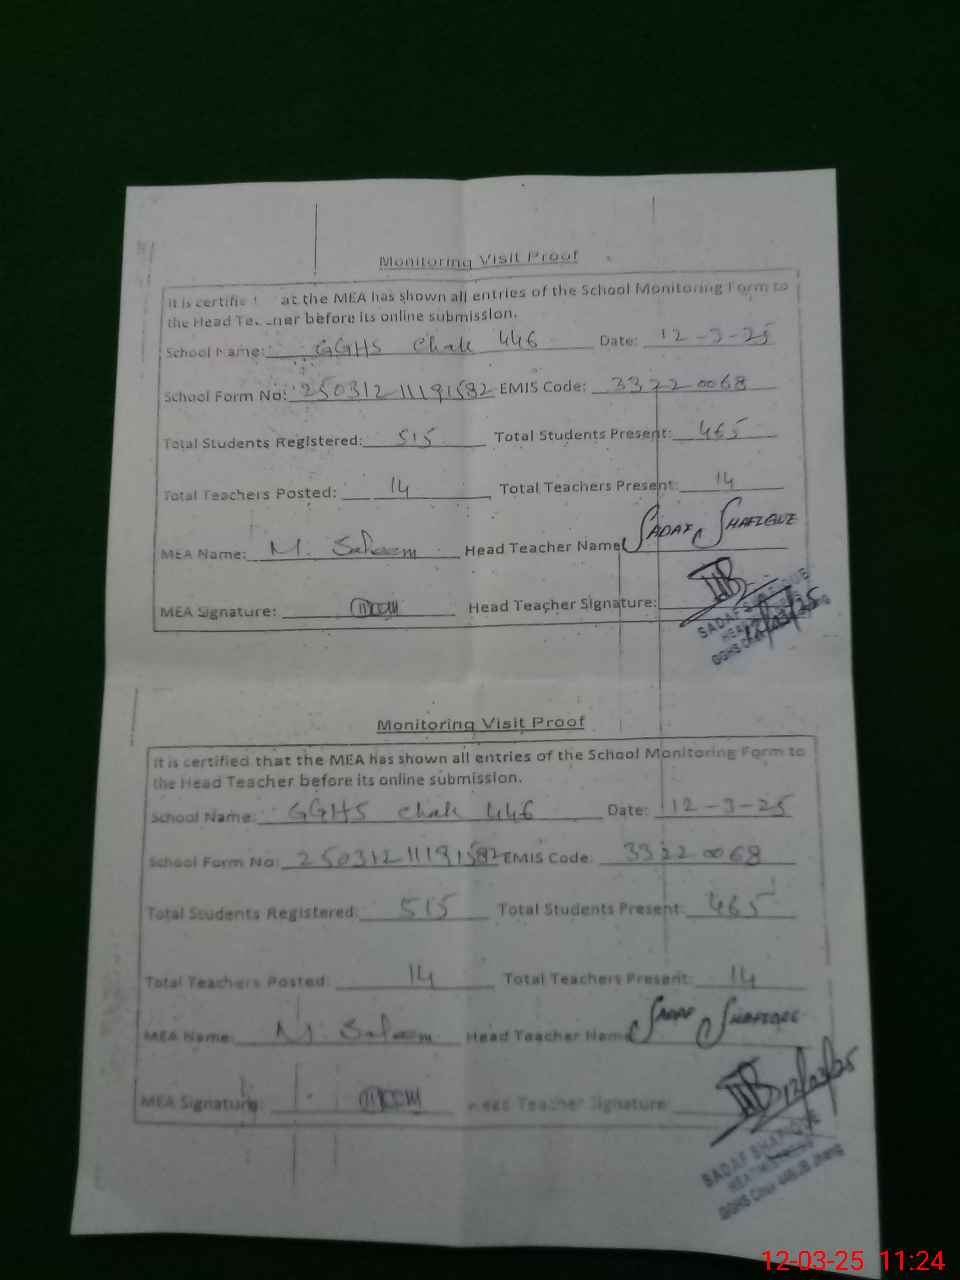 Monitoring Visit Proof
It is certified at the MEA has shown all entries of the School Monitoring Form to
the Head Teacher before its online submission.
School Name: GGHS Chak 446 Date: 12-3-25
School Form No: 25031211191582 EMIS Code: 33220068
Total Students Registered: 515 Total Students Present: 465
Total Teachers Posted: 14 Total Teachers Present: 14
MEA Name: M. Saleem Head Teacher Name: SADAF SHAFIQUE
MEA Signature: Head Teacher Signature:
SADAF SHAFIQUE
12/03/25
Monitoring Visit Proof
It is certified that the MEA has shown all entries of the School Monitoring Form to
the Head Teacher before its online submission.
School Name: GGHS Chak 446 Date: 12-3-25
School Form No: 25031211191582 EMIS Code: 33220068
Total Students Registered: 515 Total Students Present: 465
Total Teachers Posted: 14 Total Teachers Present: 14
MEA Name: M. Saleem Head Teacher Name: SADAF SHAFIQUE
MEA Signature: Head Teacher Signature:
12/03/25
SADAF SHAFIQUE
HEADMISTRESS
GGHS Chak 446/JB Jhang
12-03-25 11:24